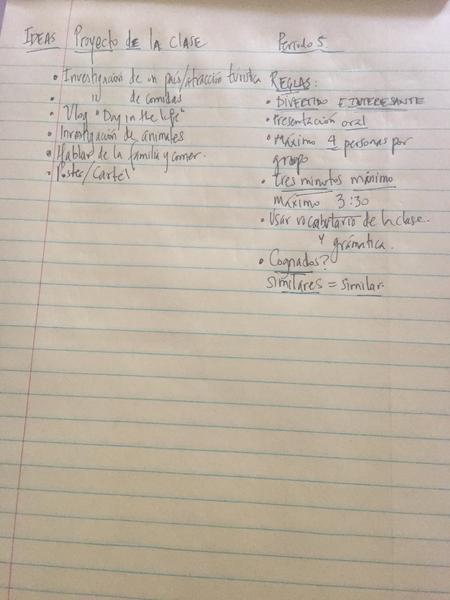 IDEAS Proyecto DE LA CLASE
Periodo 5.
• Investigación de un país/atracción turística
• " de comidas
• Vlog "Day in the life"
• Investigación de animales
• Hablar de la familia y comer.
• Poster/Cartel
REGLAS:
• DIVERTIDO E INTERESANTE
• Presentación oral
• Máximo 4 personas por
grupo
• tres minutos mínimo
máximo 3:30
• Usar vocabulario de la clase.
y gramática.
• Cognados?
similares = similar.